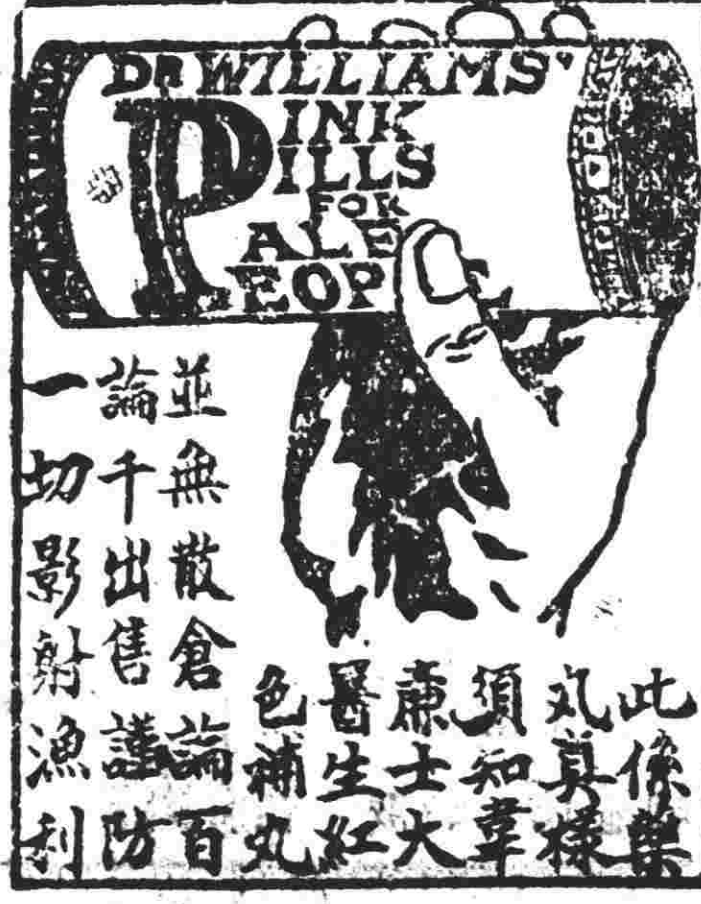 DR WILLIAMS'
PINK
PILLS
FOR
PALE
PEOP
此係藥
丸真樣
須知韋
廉士大
醫生紅
色補丸
並無散倉論百
論千出售謹防
一切影射漁利